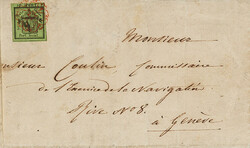 Monsieur
Coulin, Commissaire
de la Navigation
Rive No 8.
à Genève